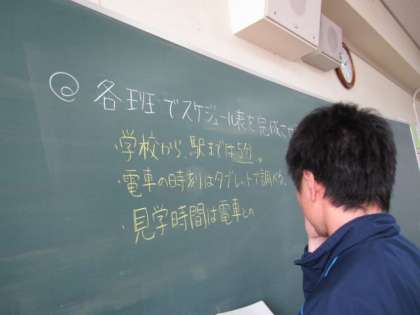 ◎ 各班でスケジュール表を完成させ
・学校から駅までは5分。
・電車の時刻はタブレットで調べる。
・見学時間は電車との